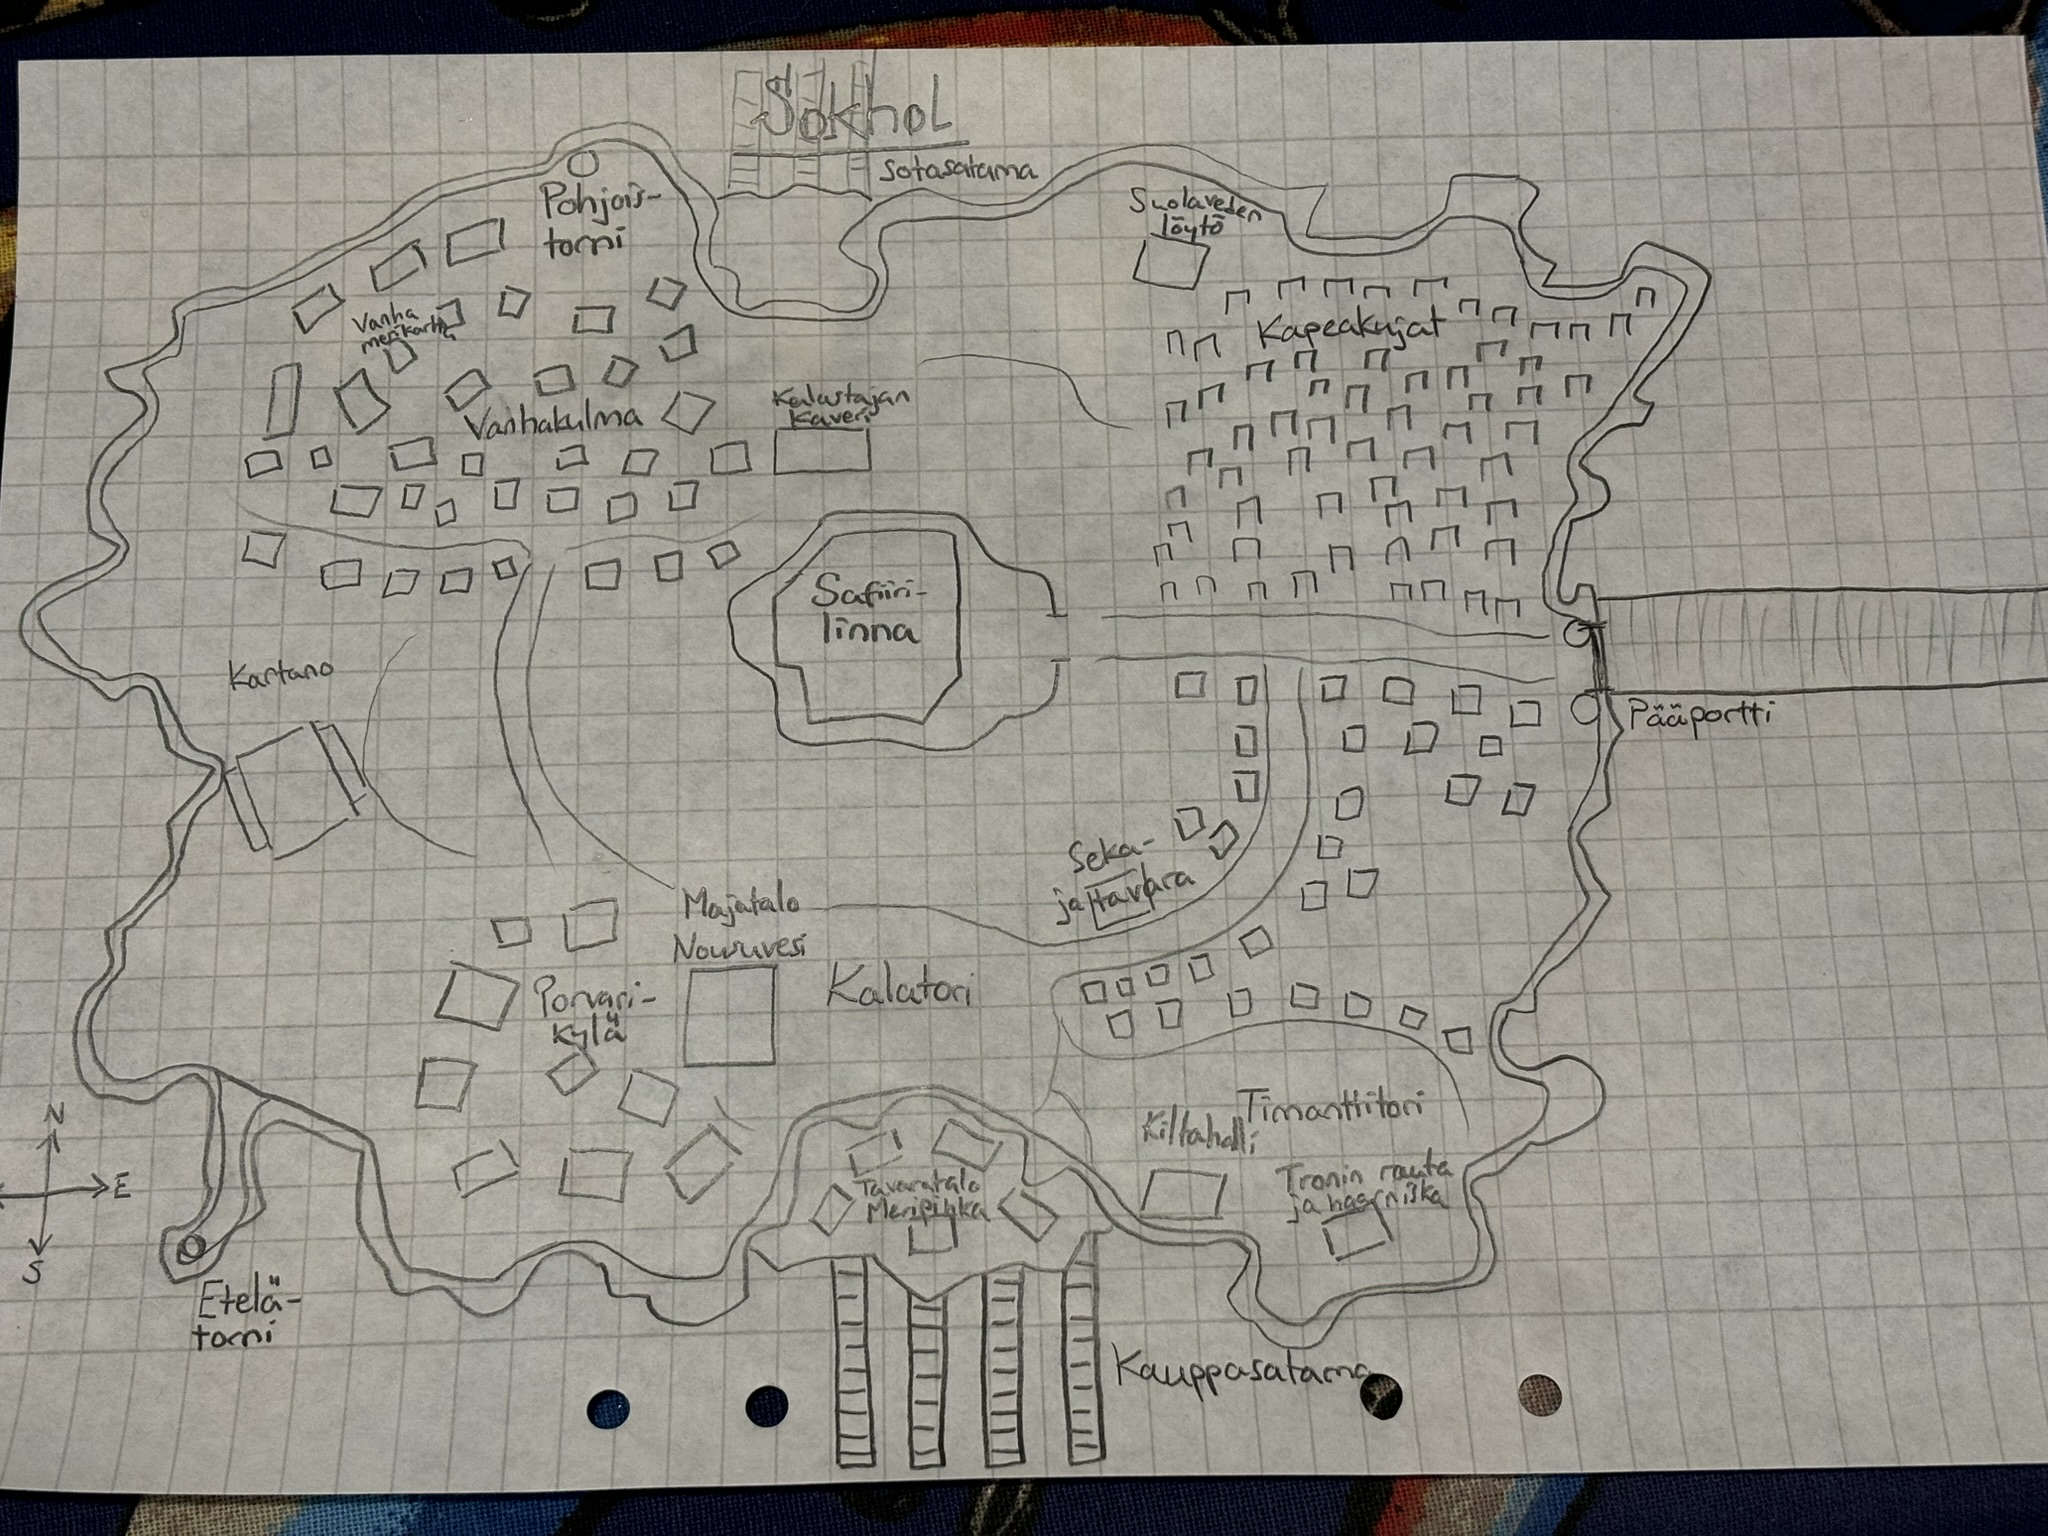 Sokhol
Sotasatama
Pohjois-
torni
Suolaveden
löytö
Vanha
merikartta
Kapeakujat
Kalastajan
Kaveri
Vanhakulma
Safiiri-
linna
Kartano
Pääportti
Seka-
ja tavara
Majatalo
Nousuvesi
Kalatori
Porvari-
kylä
Timanttitori
Kiltahalli
Tavaratalo
Meripihka
Tronin rauta
ja haarniska
N
E
S
Etelä-
torni
Kauppasatama